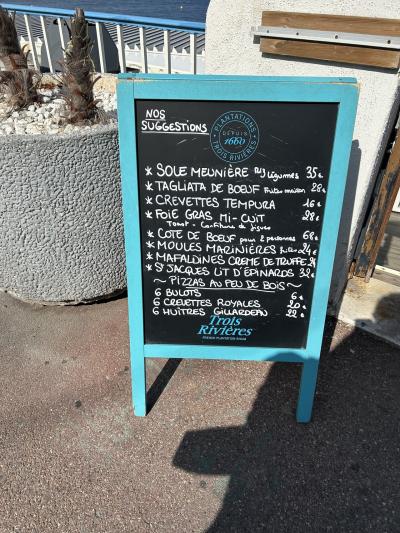 NOS
SUGGESTIONS
PLANTATIONS
DEPUIS
1660
TROIS RIVIÈRES
* SOLE MEUNIÈRE riz légumes 35€
* TAGLIATA DE BOEUF frites maison 28€
* CREVETTES TEMPURA 16€
* FOIE GRAS MI-CUIT 28€
Toast - Confiture de figues
* COTE DE BOEUF pour 2 personnes 68€
* MOULES MARINIÈRES frites 24€
* MAFALDINES CREME DE TRUFFE 24
* ST JACQUES LIT D'ÉPINARDS 32€
~ PIZZAS AU FEU DE BOIS ~
6 BULOTS 6€
6 CREVETTES ROYALES 20€
6 HUÎTRES GILLARDEAU 22€
Trois
Rivières
FRENCH PLANTATION RHUM